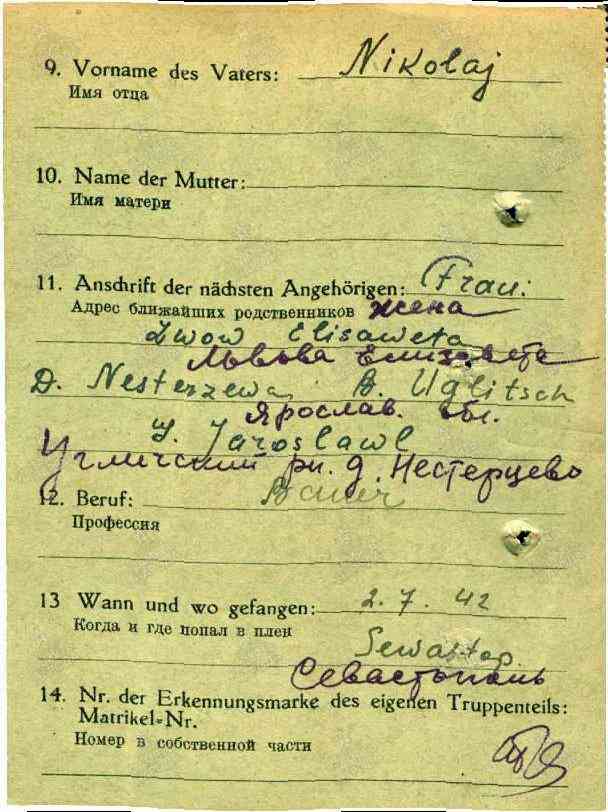 9. Vorname des Vaters: Nikolaj
Имя отца
10. Name der Mutter:
Имя матери
11. Anschrift der nächsten Angehörigen: Frau:
Адрес ближайших родственников жена
Lwow Elisaweta
Львова Елизавета
D. Nesterzewa, B. Uglitsch
Ярослав. обл.
Jaroslawl
Угличский рн. д. Нестерцево
12. Beruf: Bauer
Профессия
13 Wann und wo gefangen: 2.7.42
Когда и где попал в плен
Sewastop.
Севастополь
14. Nr. der Erkennungsmarke des eigenen Truppenteils:
Matrikel-Nr.
Номер в собственной части